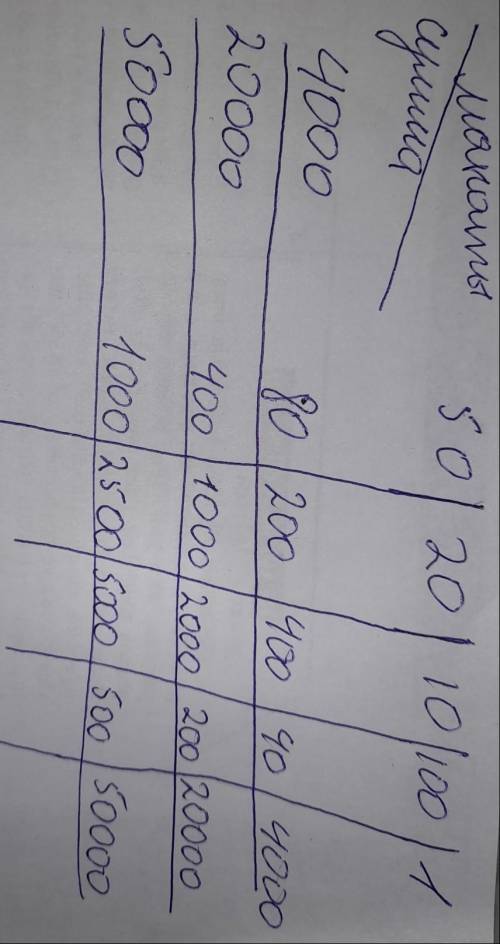 манаты 50 20 10 100 1
сумма
4000 80 200 400 40 4000
20000 400 1000 2000 200 20000
50000 1000 2500 5000 500 50000